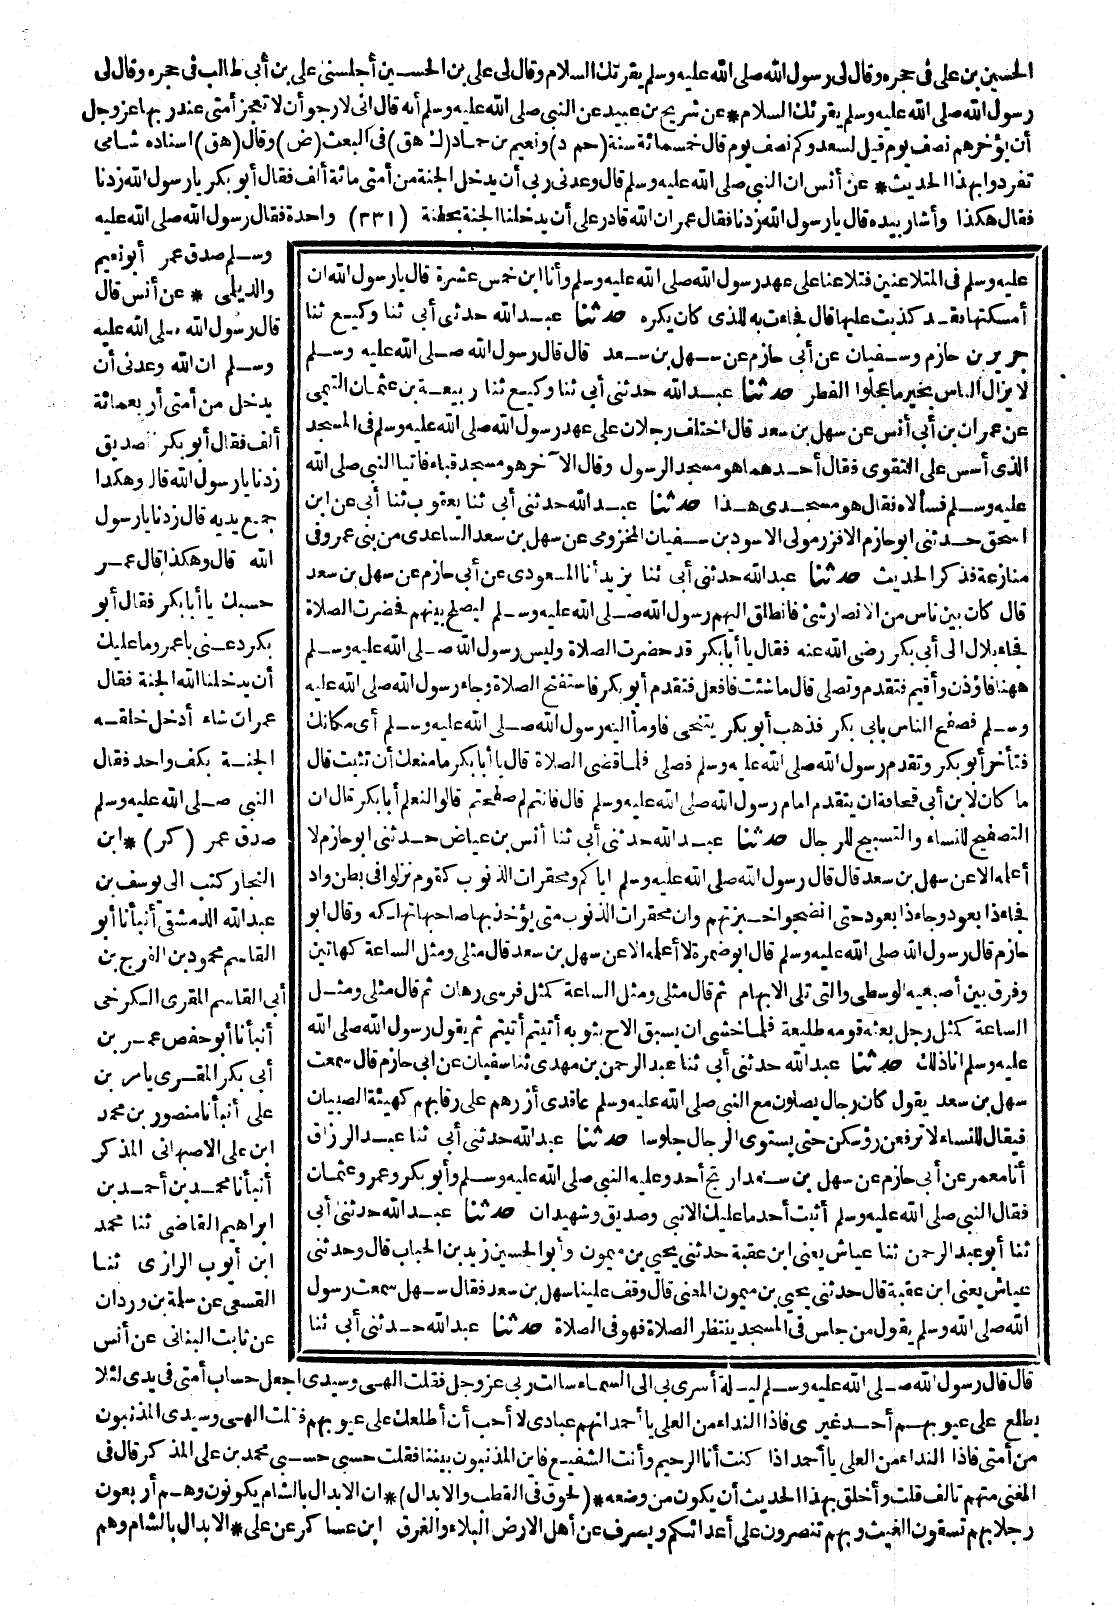 الحسين بن على فى حجره وقال لى رسول الله صلى الله عليه وسلم يقرئك السلام وقال لى على بن الحسين أجلسنى على بن أبى طالب فى حجره وقال لى
رسول الله صلى الله عليه وسلم يقرئك السلام * عن شريح بن عبيد عن النبى صلى الله عليه وسلم أنه قال انى لارجو أن لا تعجز أمتى عند ربها عز وجل
أن يؤخرهم نصف يوم قيل لسعد وكم نصف يوم قال خمسمائة سنة (حم د) ونعيم بن حماد (ك هق) فى البعث (ض) وقال (هق) اسناده شامى
تفردوا بهذا الحديث * عن أنس ان النبى صلى الله عليه وسلم قال وعدنى ربى أن يدخل الجنة من أمتى مائة ألف فقال أبو بكر يا رسول الله زدنا
فقال هكذا وأشار بيده قال يا رسول الله زدنا فقال عمر ان الله قادر على أن يدخلنا الجنة بحفنة (٣٣١) واحدة فقال رسول الله صلى الله عليه
وسلم صدق عمر أبو نعيم
والديلمى * عن أنس قال
قال رسول الله صلى الله عليه
وسلم ان الله وعدنى أن
يدخل من أمتى أربعمائة
ألف فقال أبو بكر الصديق
زدنا يا رسول الله قال وهكذا
جمع يديه قال زدنا يا رسول
الله قال وهكذا قال عمر
حسبك يا أبا بكر فقال أبو
بكر دعنى يا عمر وما عليك
أن يدخلنا الله الجنة فقال
عمر ان شاء أدخل خلقه
الجنة بكف واحد فقال
النبى صلى الله عليه وسلم
صدق عمر (كر) * ابن
النجار كتب الى يوسف بن
عبد الله الدمشقى أنبأنا أبو
القاسم محمود بن الفرج بن
أبى القاسم المقرى الكرخى
أنبأنا أبو حفص عمر بن
أبى بكر المقرى يامر بن
على أنبأنا منصور بن محمد
ابن على الاصبهانى المذكر
أنبأنا محمد بن أحمد بن
ابراهيم القاضى ثنا محمد
ابن أيوب الرازى ثنا
القسعى عن سلمة بن وردان
عن ثابت البنانى عن أنس
عليه وسلم فى المتلاعنين فتلاعنا على عهد رسول الله صلى الله عليه وسلم وأنا ابن خمس عشرة قال يا رسول الله ان
أمسكتها فقد كذبت عليها قال فجاءت به للذى كان يكره حدثنا عبد الله حدثى أبى ثنا وكيع ثنا
جرير بن حازم وسفيان عن أبى حازم عن سهل بن سعد قال قال رسول الله صلى الله عليه وسلم
لا يزال الناس بخير ما عجلوا الفطر حدثنا عبد الله حدثنى أبى ثنا وكيع ثنا ربيعة بن عثمان التيمى
عن عمران بن أبى أنس عن سهل بن سعد قال اختلف رجلان على عهد رسول الله صلى الله عليه وسلم فى المسجد
الذى أسس على التقوى فقال أحدهما هو مسجد الرسول وقال الآخر هو مسجد قباء فاتيا النبى صلى الله
عليه وسلم فسألاه فقال هو مسجدى هذا حدثنا عبد الله حدثنى أبى ثنا يعقوب ثنا أبى عن ابن
اسحق حدثنى ابو حازم الافزر مولى الاسود بن سفيان المخزومى عن سهل بن سعد الساعدى من بنى عمرو فى
منازعة فذكر الحديث حدثنا عبد الله حدثنى أبى ثنا يزيد أنا المسعودى عن أبى حازم عن سهل بن سعد
قال كان بين ناس من الانصار شئ فانطلق اليهم رسول الله صلى الله عليه وسلم ليصلح بينهم فحضرت الصلاة
فجاء بلال الى أبى بكر رضى الله عنه فقال يا أبا بكر قد حضرت الصلاة وليس رسول الله صلى الله عليه وسلم
ههنا فاؤذن وأقيم فتقدم وتصلى قال ما شئت فافعل فتقدم أبو بكر فاستفتح الصلاة وجاء رسول الله صلى الله عليه
وسلم فصفح الناس بابى بكر فذهب أبو بكر يتنحى فاومأ اليه رسول الله صلى الله عليه وسلم أى مكانك
فتأخر أبو بكر وتقدم رسول الله صلى الله عليه وسلم فصلى فلما قضى الصلاة قال يا أبا بكر ما منعك أن تثبت قال
ما كان لابن أبى قحافة ان يتقدم امام رسول الله صلى الله عليه وسلم قال فانتم لم صفحتم قالوا لنعلم أبا بكر قال ان
التصفيح للنساء والتسبيح للرجال حدثنا عبد الله حدثنى أبى ثنا أنس بن عياض حدثنى ابو حازم لا
أعلمه الا عن سهل بن سعد قال قال رسول الله صلى الله عليه وسلم اياكم ومحقرات الذنوب كقوم نزلوا فى بطن واد
فجاء ذا بعود وجاء ذا بعود حتى انضجوا خبزتهم وان محقرات الذنوب متى يؤخذ بها صاحبها تهلكه وقال ابو
حازم قال رسول الله صلى الله عليه وسلم قال ابو ضمرة لا أعلمه الا عن سهل بن سعد قال مثلى ومثل الساعة كهاتين
وفرق بين أصبعيه الوسطى والتى تلى الابهام ثم قال مثلى ومثل الساعة كمثل فرسى رهان ثم قال مثلى ومثل
الساعة كمثل رجل بعثه قومه طليعة فلما خشى ان يسبق الاح بثوبه أتيتم أتيتم ثم يقول رسول الله صلى الله
عليه وسلم انا ذلك حدثنا عبد الله حدثنى أبى ثنا عبد الرحمن بن مهدى ثنا سفيان عن ابى حازم قال سمعت
سهل بن سعد يقول كان رجال يصلون مع النبى صلى الله عليه وسلم عاقدى أزرهم على رقابهم كهيئة الصبيان
فيقال للنساء لا ترفعن رؤسكن حتى يستوى الرجال جلوسا حدثنا عبد الله حدثنى أبى ثنا عبد الرزاق
أنا معمر عن أبى حازم عن سهل بن سعد ارتج أحد وعليه النبى صلى الله عليه وسلم وأبو بكر وعمر وعثمان
فقال النبى صلى الله عليه وسلم أثبت أحد ما عليك الا نبى وصديق وشهيدان حدثنا عبد الله حدثنى أبى
ثنا أبو عبد الرحمن ثنا عياش يعنى ابن عقبة حدثنى يحيى بن ميمون وأبو الحسين زيد بن الحباب قال وحدثنى
عياش يعنى ابن عقبة قال حدثنى يحيى بن ميمون المدنى قال وقف علينا سهل بن سعد فقال سهل سمعت رسول
الله صلى الله وسلم يقول من جلس فى المسجد ينتظر الصلاة فهو فى الصلاة حدثنا عبد الله حدثنى أبى ثنا
قال قال رسول الله صلى الله عليه وسلم ليلة أسرى بى الى السماء سالت ربى عز وجل فقلت الهى وسيدى اجعل حساب أمتى فى يدى لئلا
يطلع على عيوبهم أحد غيرى فاذا النداء من العلى يا أحمد انهم عبادى لا أحب أن أطلعك على عيوبهم فقلت الهى وسيدى المذنبون
من أمتى فاذا النداء من العلى يا أحمد اذا كنت أنا الرحيم وأنت الشفيع فاين المذنبون بيننا فقلت حسبى حسبى محمد بن على المذكر قال فى
المغنى متهم تالف قلت وأخلق بهذا الحديث أن يكون من وضعه * (لحوق فى القطب والابدال) * ان الابدال بالشام يكونون وهم أربعون
رجلا بهم تسقون الغيث وبهم تنصرون على أعدائكم ويصرف عن أهل الارض البلاء والغرق ابن عساكر عن على * الابدال بالشام وهم